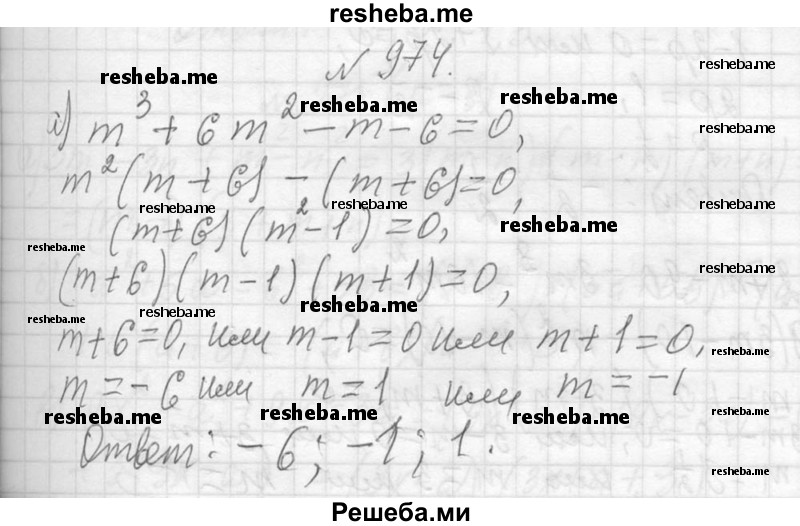 resheba.me
№ 974.
resheba.me resheba.me
resheba.me resheba.me
а) m³ + 6m² − m − 6 = 0,
resheba.me
m²(m + 6) − (m + 6) = 0,
resheba.me resheba.me resheba.me
(m+6)(m² − 1) = 0,
resheba.me resheba.me
(m+6)(m−1)(m+1) = 0,
resheba.me resheba.me
resheba.me
m+6=0, или m−1=0 или m+1=0,
resheba.me
m = −6 или m = 1 или m = −1
resheba.me resheba.me resheba.me resheba.me
Ответ: −6; −1; 1.
resheba.me
Решеба.ми